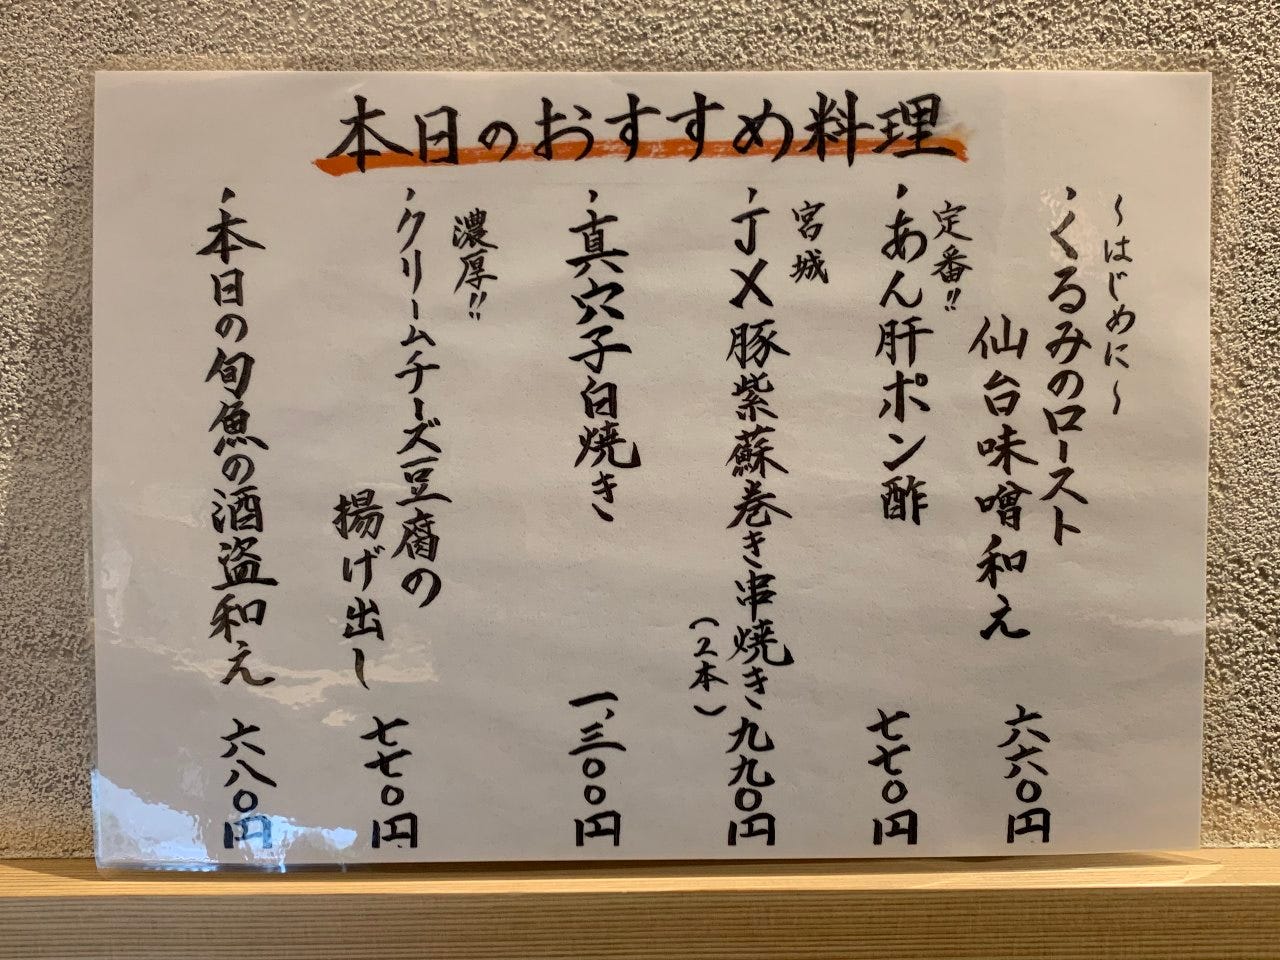 本日のおすすめ料理
～はじめに～
・くるみのロースト
仙台味噌和え
六六〇円
定番!!
・あん肝ポン酢
七七〇円
宮城
・JX豚紫蘇巻き串焼き
(2本)
九九〇円
・真穴子白焼き
一、三〇〇円
濃厚!!
・クリームチーズ豆腐の
揚げ出し
七七〇円
・本日の旬魚の酒盗和え
六八〇円